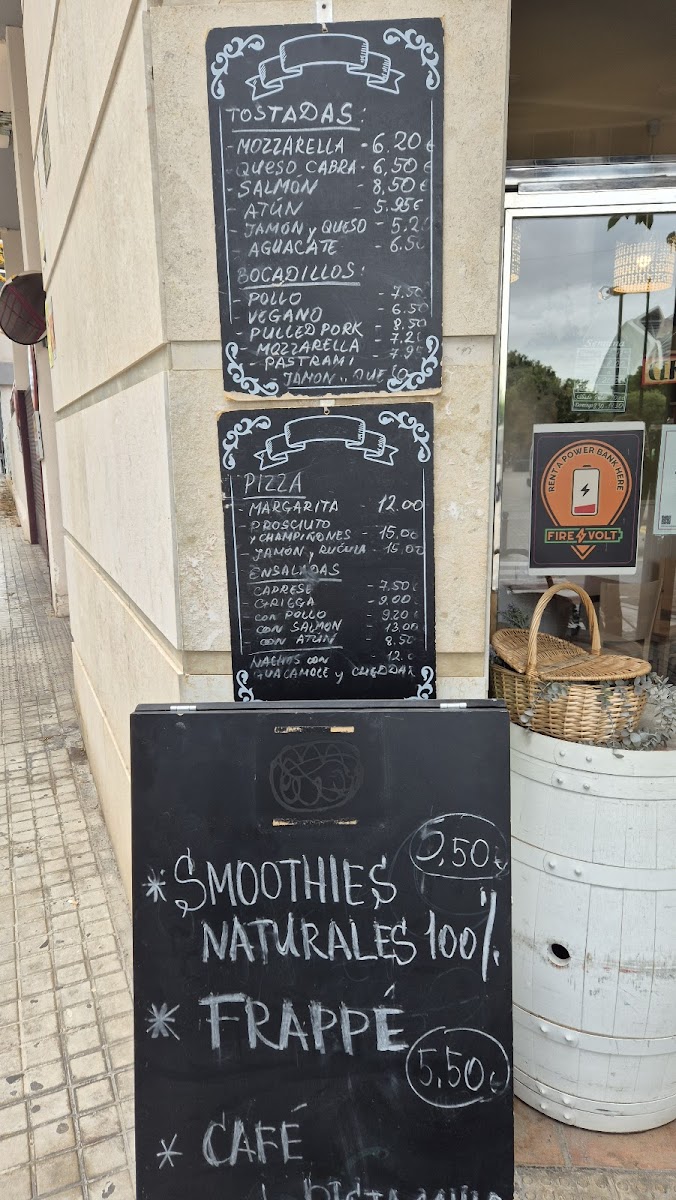 TOSTADAS:
- MOZZARELLA - 6.20 €
- QUESO CABRA - 6,50 €
- SALMÓN - 8,50 €
- ATÚN - 5.95 €
- JAMÓN y QUESO - 5.2
- AGUACATE - 6.50
BOCADILLOS:
- POLLO - 7.50
- VEGANO - 6.50
- PULLED PORK - 8.50
- MOZZARELLA - 7.20
- PASTRAMI - 7.95
JAMON y QUESO
PIZZA
- MARGARITA - 12.00
- PROSCIUTO
y CHAMPIÑONES - 15,00
- JAMÓN y RUCULA - 15,00
ENSALADAS
- CAPRESE - 7.50 €
- GRIEGA - 9.00
- CON POLLO - 9.20 €
- CON SALMON - 13.00
- CON ATÚN - 8.50
NACHOS CON - 12.
GUACAMOLE y CHEDDAR
RENT A POWER BANK HERE
FIRE VOLT
5,50 €
* SMOOTHIES
NATURALES 100%
* FRAPPÉ
5,50 €
* CAFÉ